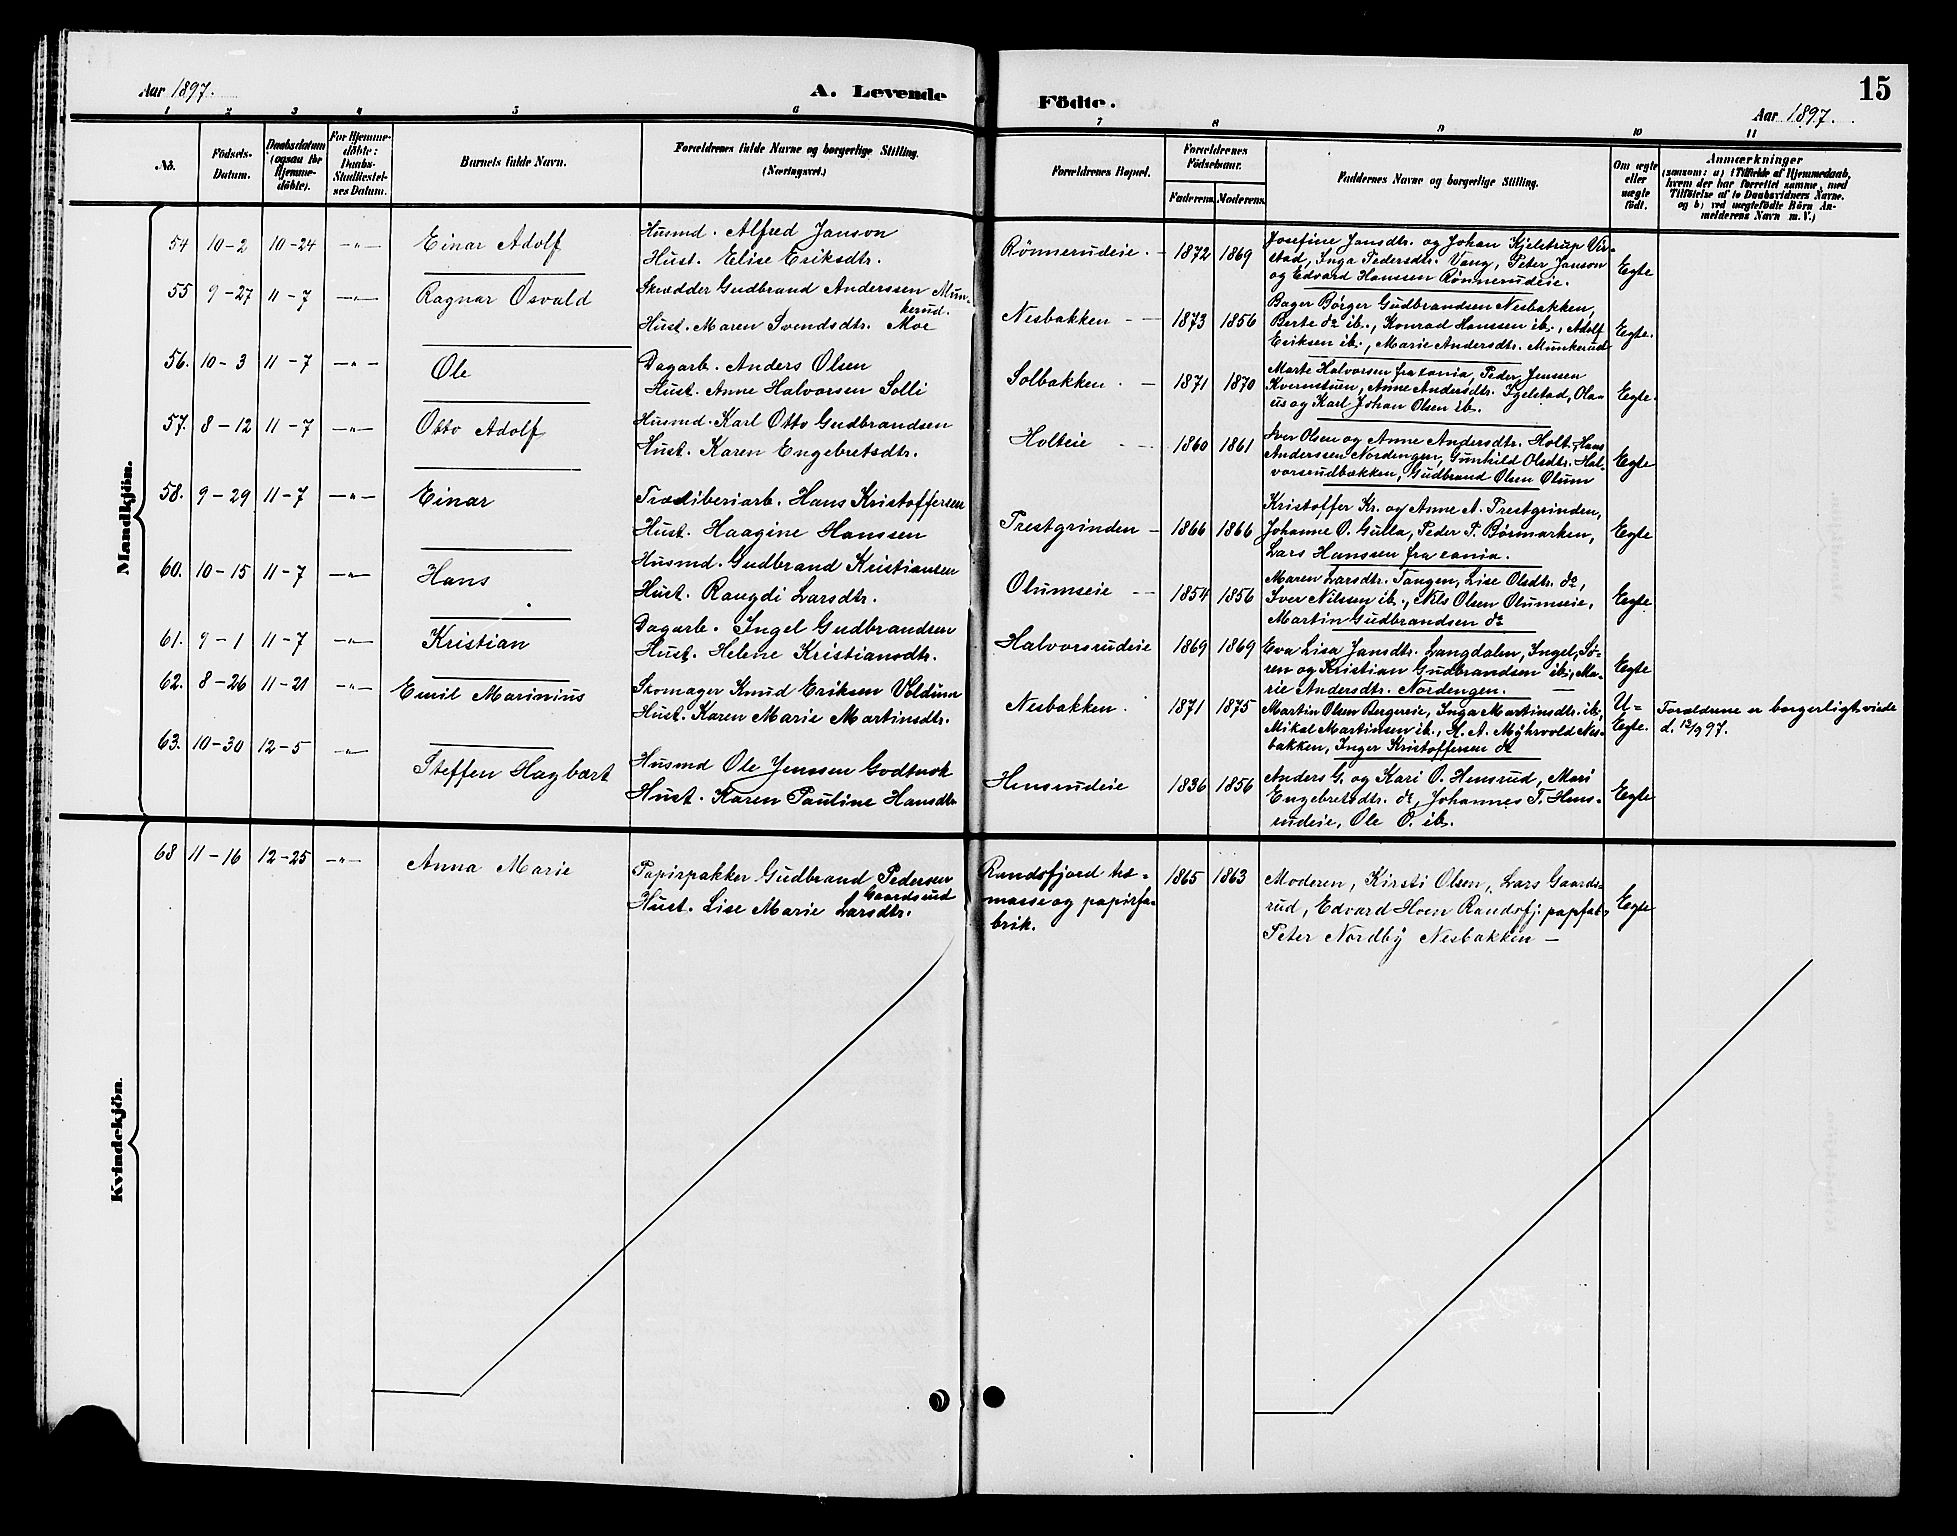 Aar 1897.
A. Levende Födte.
15
Aar 1897.
1 2 3 4 5 6 7 8 9 10 11
No.
Födsels-Datum.
Daabsdatum (ogsaa for Hjemme-döbte).
For Hjemme-döbte: Daabs-Stadfæstel-ses Datum.
Barnets fulde Navn.
Forældrenes fulde Navne og borgerlige Stilling. (Næringsvei.)
Forældrenes Bopæl.
Forældrenes Födselsaar.
Faderens. Moderens.
Faddernes Navne og borgerlige Stilling.
Om ægte eller uægte födt.
Anmærkninger
(saasom: a) i Tilfælde af Hjemmedaab,
hvem der har forrettet samme, med
Tilföielse af to Daabsvidners Navne.
og b) ved uægtefödte Börn An-
melderens Navn m. V.)
Mandkjön.
54 10-2 10-24 -"- Einar Adolf
Husmd. Alfred Janson
Hust. Elise Eriksdtr.
Rønnerudeie. - 1872 1869
Josefine Jansdtr. og Johan Kjelstrup Vir-
stad, Inga Pedersdtr. Vang, Peter Janson
og Edvard Hanssen Rönnerudeie.
Egte
55 9-27 11-7 -"- Ragnar Osvald
Skrædder Gudbrand Anderssen Mun-
kerud.
Hust. Maren Svendsdtr. Moe
Nesbakken - - 1873 1856
Bager Börger Gudbrandsen Nesbakken,
Berte do ib., Konrad Hanssen ib., Adolf
Eriksen ib., Marie Andersdtr. Munkerud
Egte.
56. 10-3 11-7 -"- Ole
Dagarb. Anders Olsen
Hust. Anne Halvorsen Solli
Solbakken. - 1871 1870
Marte Halvorsen fra xania, Peder Jenssen
Kvernstuen, Anne Andersdtr. Igelstad, Ola-
us og Karl Johan Olsen ib.
Egte.
57. 8-12 11-7 -"- Otto Adolf
Husmd. Karl Otto Gudbrandsen
Hust. Karen Engebretsdtr.
Holteie - 1860 1861
Iver Olsen og Anne Andersdtr. Holt, Hans
Anderssen Nordengen, Gunhild Olsdtr. Hal-
vorsrudbakken, Gudbrand Olsen Olum
Egte
58. 9-29 11-7 -"- Einar
Træsliberiarb. Hans Kristoffersen
Hust. Haagine Hanssen
Prestgrinden - 1866 1866
Kristoffer Kr. og Anne A. Prestgrinden,
Johanne O. Gulla, Peder P. Börmarken,
Lars Hanssen fra xania.
Egte
60. 10-15 11-7 -"- Hans
Husmd. Gudbrand Kristiansen
Hust. Rangdi Larsdtr.
Olumseie - - 1854 1856
Maren Larsdtr. Tangen, Lise Olsdtr. do,
Iver Nilssen ib., Nils Olsen Olumseie,
Martin Gudbrandsen do
Egte
61. 9-1 11-7 -"- Kristian
Dagarb. Ingel Gudbrandsen
Hust. Helene Kristiansdtr.
Halvorsrudeie 1869 1869
Eva Lisa Jansdtr. Langdalen, Ingel, Sö-
ren og Kristian Gudbrandsen ib., Ma-
rie Andersdtr. Nordengen. -
Egte
62. 8-26 11-21 -"- Emil Marinius
Skomager Knud Eriksen Veldum
Hust. Karen Marie Martinsdtr.
Nesbakken. 1871 1875
Martin Olsen Bergereie, Inga Martinsdtr. ib.,
Mikal Martinsen ib., H. A. Myhrvold Nes-
bakken, Inger Kristoffersen do
U-
Egte.
Forældrene er borgerligt viede
d. 12/9 97.
63. 10-30 12-5 -"- Steffen Hagbart
Husmd Ole Jenssen Godtnok
Hust. Karen Pauline Hansdtr
Hensrudeie 1836 1856
Anders G. og Kari O. Hensrud, Mari
Engebretsdtr. do, Johannes T. Hens-
rudeie, Ole O. ib.
Egte
Kvindekjön.
68 11-16 12-25 -"- Anna Marie
Papirpakker Gudbrand Pedersen
Gaardsrud
Hust. Lise Marie Larsdtr.
Randsfjord træ-
masse og papirfa-
brik.
1865 1863
Moderen, Kirsti Olsen, Lars Gaards-
rud, Edvard Hoen Randsfj. papfab,
Peter Nordby Nesbakken -
Egte